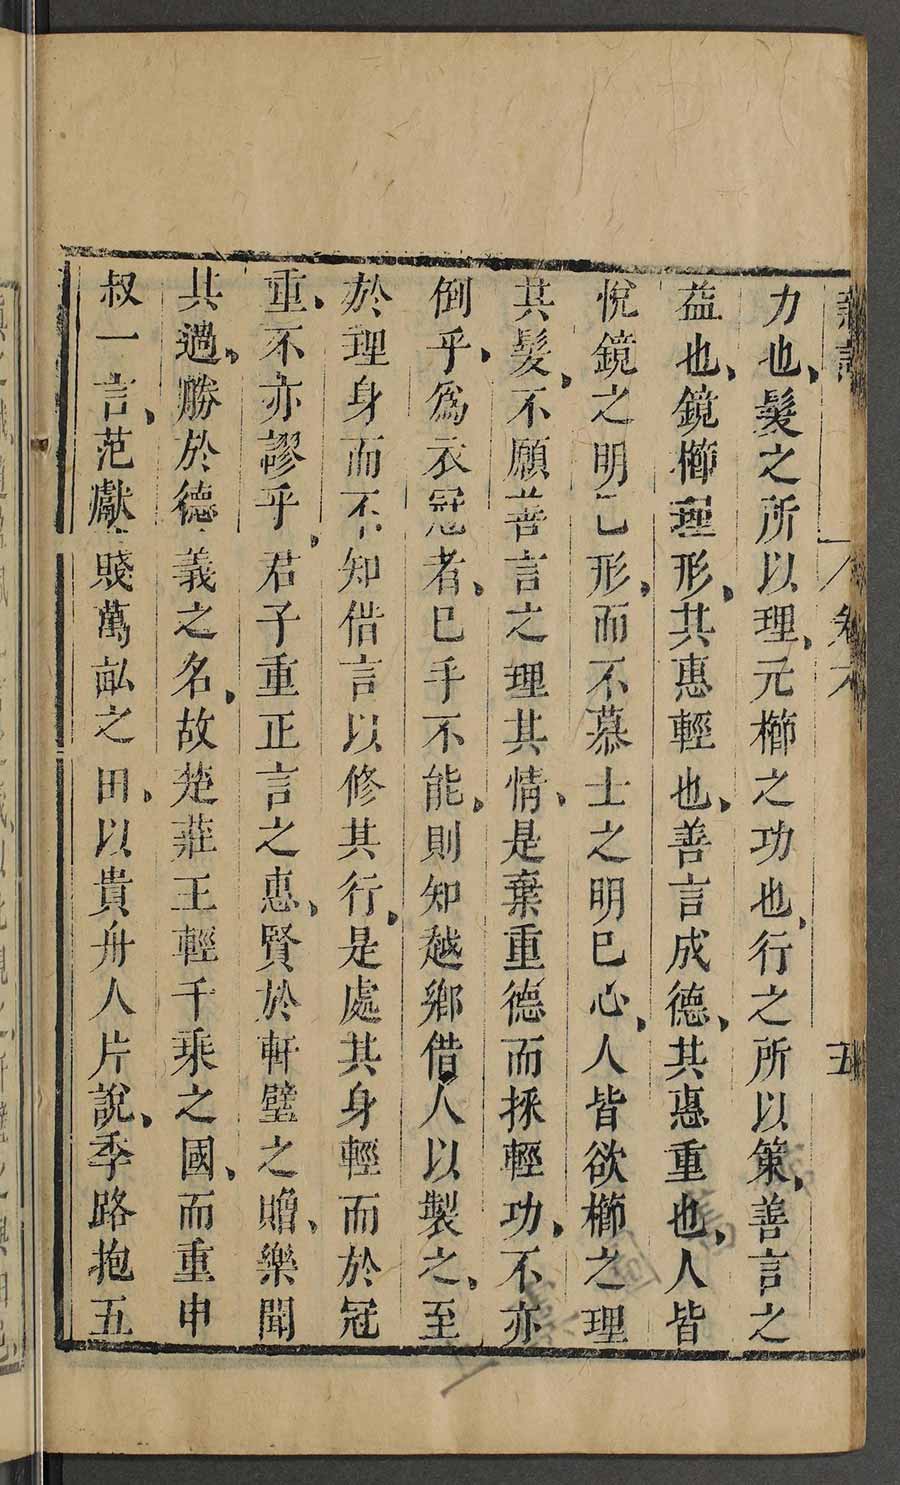 力也、髮之所以理、元櫛之功也、行之所以策、善言之
益也、鏡櫛理形、其惠輕也、善言成德、其惠重也、人皆
悅鏡之明己形、而不慕士之明己心、人皆欲櫛之理
其髮、不願善言之理其情、是棄重德而採輕功、不亦
倒乎、爲衣冠者、己手不能、則知越鄉借人以製之、至
於理身而不知借言以修其行、是處其身輕而於冠
重、不亦謬乎、君子重正言之惠、賢於軒璧之贈、樂聞
其過、勝於德義之名、故楚莊王輕千乘之國、而重申
叔一言、范獻賤萬畝之田、以貴舟人片說、季路抱五
卷六
五